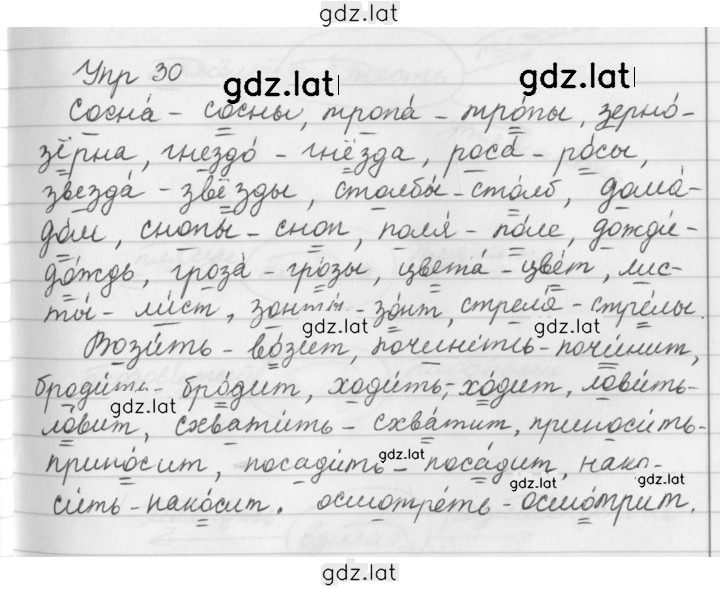 gdz.lat
Упр 30
gdz.lat
gdz.lat
Сосна́ - со́сны, тропа́ - тро́пы, зерно́-
зёрна, гнездо́ - гнёзда, роса́ - ро́сы,
звезда́ - звёзды, столбы́ - столб, дома́-
дом, снопы́ - сноп, поля́ - по́ле, дожди́-
до́ждь, гроза́ - гро́зы, цвета́ - цве́т, лис-
ты́ - ли́ст, зонты́ - зо́нт, стрела́ - стре́лы.
gdz.lat
gdz.lat
Вози́ть - во́зит, почини́ть - почи́нит,
броди́ть - бро́дит, ходи́ть - хо́дит, лови́ть-
gdz.lat
ло́вит, схвати́ть - схва́тит, приноси́ть-
gdz.lat
прино́сит, посади́ть - поса́дит, нако-
gdz.lat
gdz.lat
си́ть - нако́сит. осмотре́ть - осмо́трит.
gdz.lat